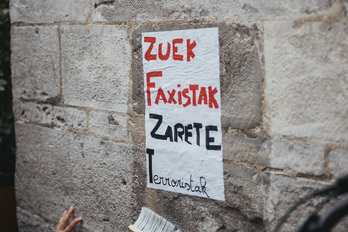 ZUEK
FAXISTAK
ZARETE
Terroristak